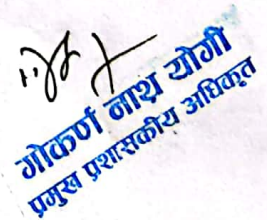 गोकर्ण नाथ योगी
प्रमुख प्रशासकीय अधिकृत